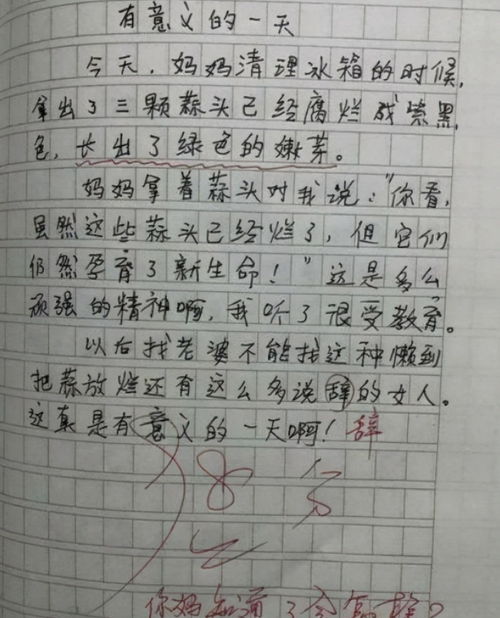 有意义的一天
今天,妈妈清理冰箱的时候,
拿出了三颗蒜头已经腐烂成紫黑
色,长出了绿色的嫩芽。
妈妈拿着蒜头对我说:“你看,
虽然这些蒜头已经烂了,但它们
仍然孕育了新生命!”这是多么
顽强的精神啊,我听了很受教育。
以后找老婆不能找这种懒到
把蒜放烂还有这么多说辞的女人。
这真是有意义的一天啊!辞
你妈知道了会